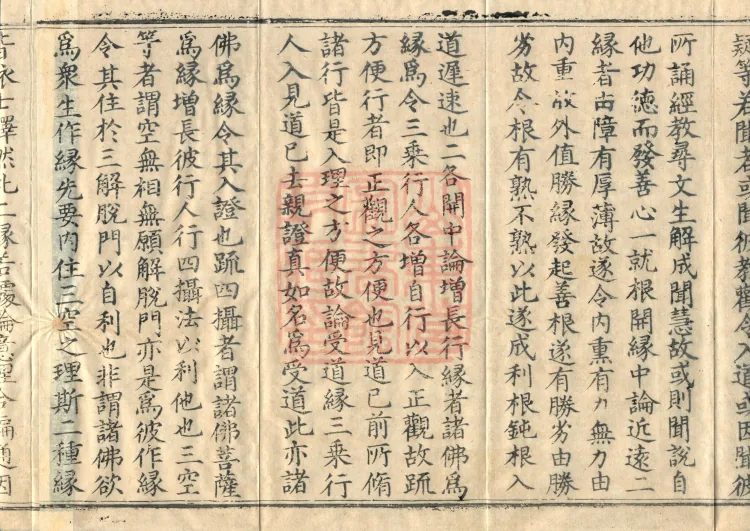 疑等若聞者或聞彼教觀令入道或因聞彼
所誦經教尋文生解成聞慧故或則聞說自
他功德而發善心一就根開緣中論近遠二
緣者由障有厚薄故遂令內熏有力無力由
內重故外值勝緣發起善根遂有勝劣由勝
劣故令根有熟不熟以此遂成利根鈍根入
道遲速也二各開中論增長行緣者諸佛爲
緣爲令三乘行人各增自行以入正觀故疏
方便行者即正觀之方便也見道已前所脩
諸行皆是入理之方便故論受道緣三乘行
人入見道已去親證真如名爲受道此亦諸
佛爲緣令其入證也疏四攝者謂諸佛菩薩
爲緣增長彼行人行四攝法以利他也三空
等者謂空無相無願解脫門亦是爲彼作緣
令其住於三解脫門以自利也非謂諸佛欲
爲衆生作緣先要內住三空之理斯二種緣
皆依士釋然此二緣